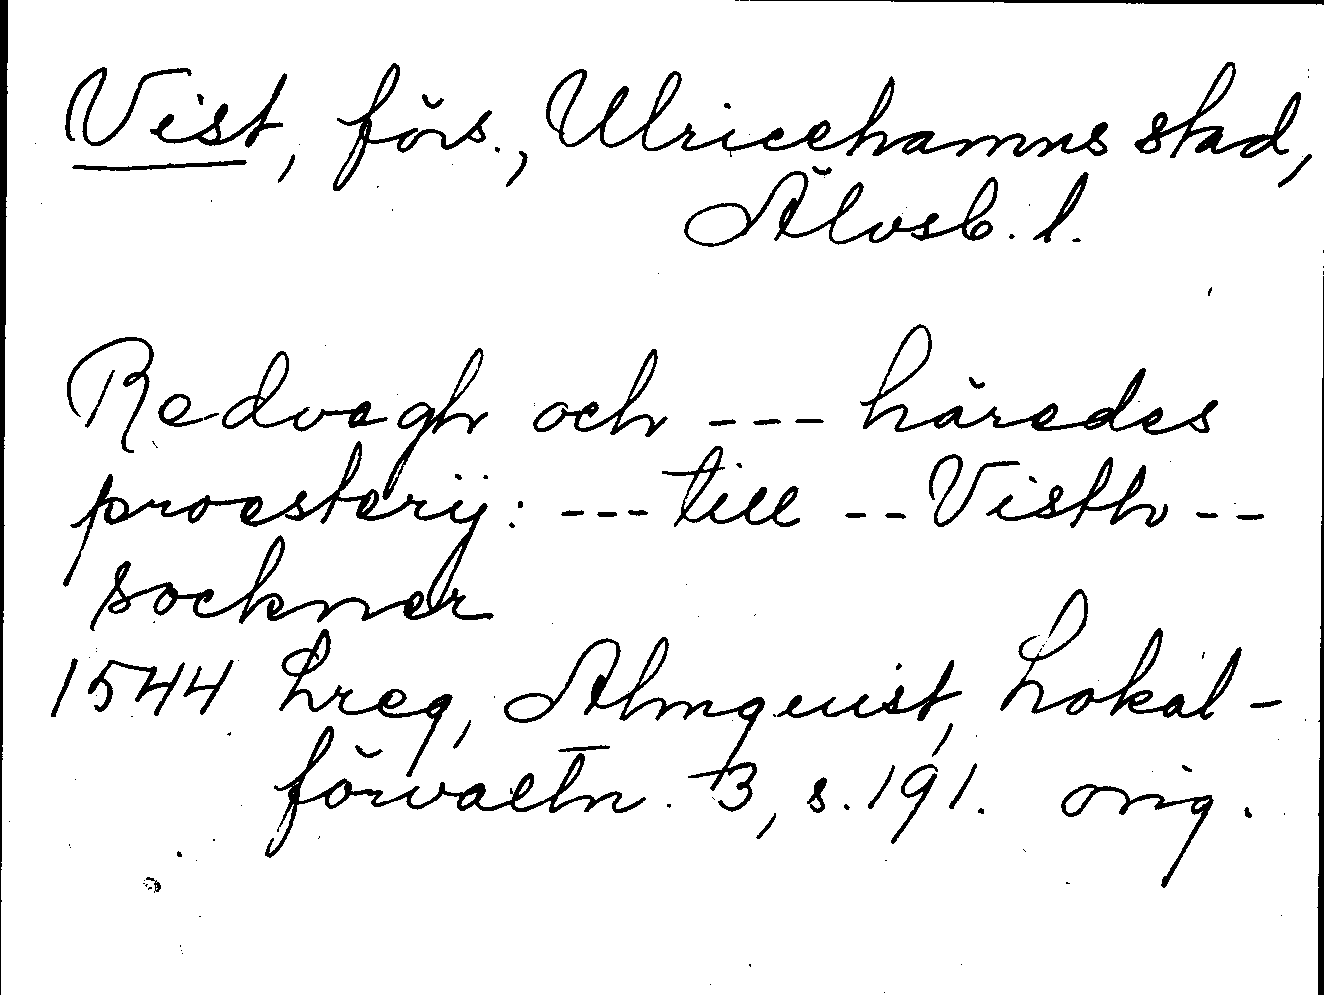 Vist, förs., Ulricehamns stad,
Älvsb. l.
Redvegh och --- häredes
proesterij: --- till -- Visth --
sockner
1544 Lreg, Almquist, Lokal-
förvaltn. 3, s. 191. orig.